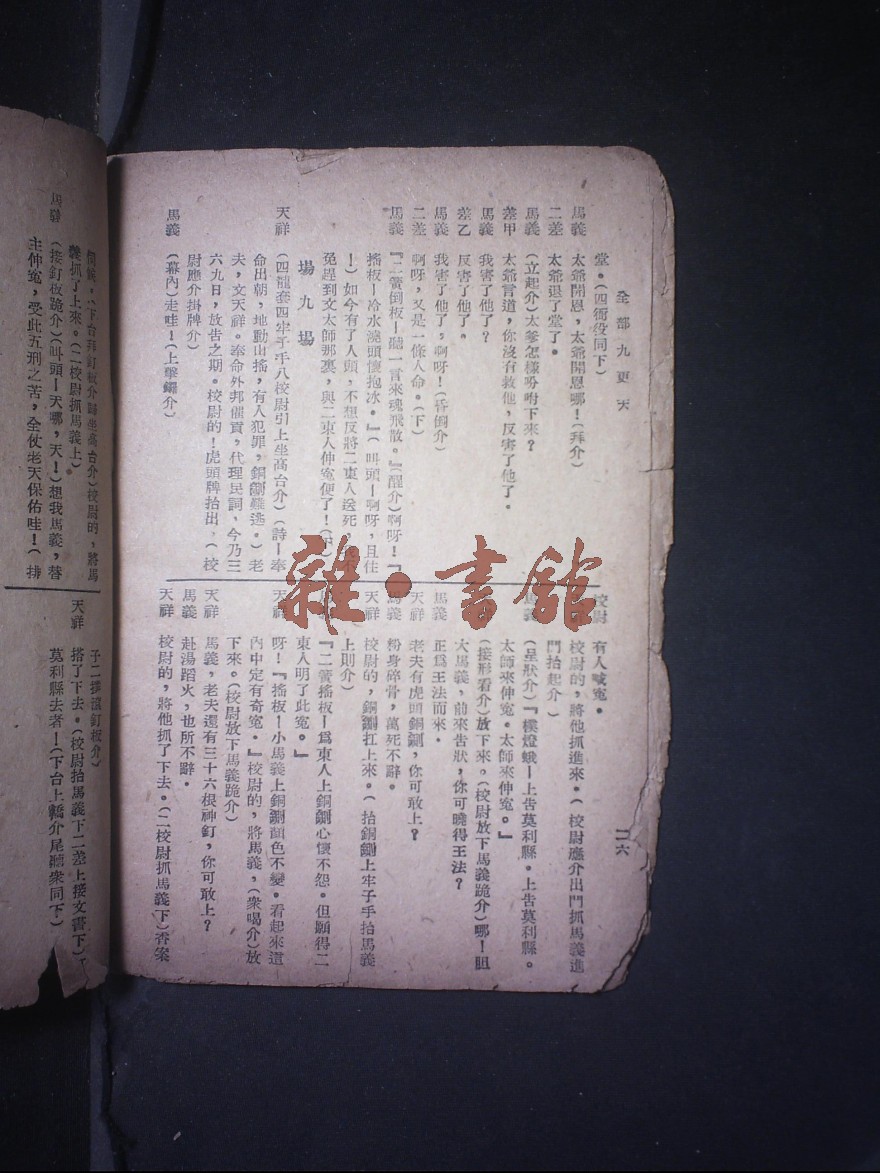 全部九更天
二六
堂。(四衙役同下)
馬義 太爺開恩,太爺開恩哪!(拜介)
二差 太爺退了堂了。
馬義 (立起介)太爹怎樣吩咐下來?
差甲 太爺言道,你沒有救他,反害了他了。
馬義 我害了他了?
差乙 反害了他了。
馬義 我害了他了,啊呀!(昏倒介)
二差 啊呀,又是一條人命。(下)
馬義 『二簧倒板—聽一言來魂飛散。』(醒介)啊呀!『
搖板—冷水澆頭懷抱冰。』(叫頭—啊呀,且住
!)如今有了人頭,不想反將二東人送死,
冤趕到文太師那裏,與二東人伸冤便了!
場九場
天祥 (四龍套四牢子手八校尉引上坐高台介)(詩—奉
命出朝,地動山搖,有人犯罪,銅鍘難逃。)老
夫,文天祥。奉命外邦催貢,代理民詞,今乃三
六九日,放告之期。校尉的!虎頭牌抬出。(校
尉應介掛牌介)
馬義 (幕內)走哇!(上擊鑼介)
校尉 有人喊冤。
校尉的,將他抓進來。(校尉應介出門抓馬義進
門抬起介)
馬義 (呈狀介)『樸燈蛾—上告莫利縣。上告莫利縣。
太師來伸冤。太師來伸冤。』
(接形看介)放下來。(校尉放下馬義跪介)哪!胆
大馬義,前來告狀,你可曉得王法?
馬義 正爲王法而來。
天祥 老夫有虎頭銅鍘,你可敢上?
馬義 粉身碎骨,萬死不辭。
天祥 校尉的,銅鍘扛上來。(抬銅鍘上牢子手抬馬義
上則介)
『二簧搖板—爲東人上銅鍘心懷不怨。但願得二
東人明了此冤。』
天祥 呀!『搖板—小馬義上銅鍘顏色不變。看起來這
內中定有奇冤。』校尉的,將馬義,(衆喝介)放
下來。(校尉放下馬義跪介)
天祥 馬義,老夫還有三十六根神釘,你可敢上?
馬義 赴湯蹈火,也所不辭。
天祥 校尉的,將他抓了下去。(二校尉抓馬義下)香案
伺候。(下台拜釘板介歸坐高台介)校尉的,將馬
義抓了上來。(二校尉抓馬義上)
馬義 (接釘板跪介)(叫頭—天哪,天!)想我馬義,替
主伸冤,受此五刑之苦,全仗老天保佑哇!(排
子二撲滾釘板介)
天祥 搭了下去。(校尉抬馬義下二差上接文書下)
莫利縣去者!(下台上轎介尾聲衆同下)
雜·書館